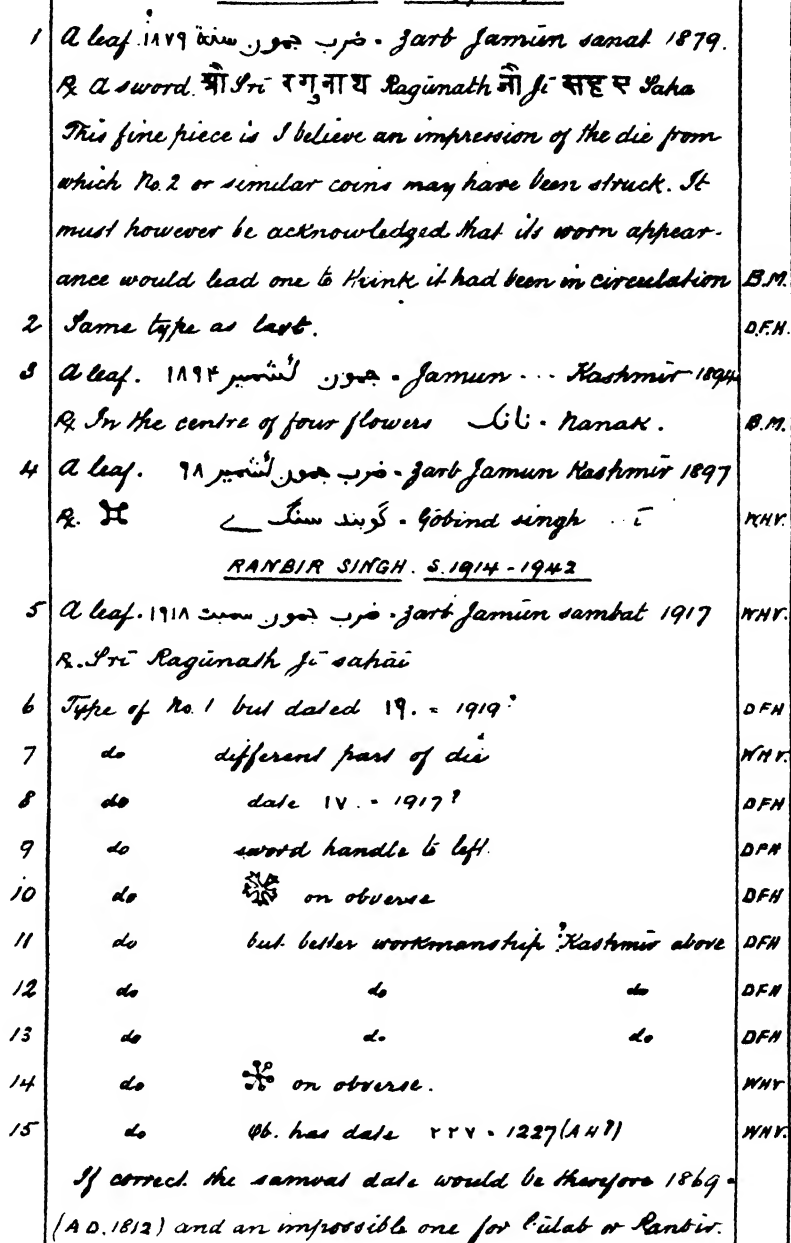 1 A leaf. ضرب جمون سنة ١٨٧٩ . Zarb Jamūn sanat 1879.
R. A sword. श्री Srī रगुनाथ Ragūnath जी Jī सहए Saha
This fine piece is I believe an impression of the die from
which No. 2 or similar coins may have been struck. It
must however be acknowledged that its worn appear-
ance would lead one to think it had been in circulation B.M.
2 Same type as last. D.F.H.
3 A leaf. جمون كشمير ١٨٩٤ . Jamun ... Kashmir 1894
R. In the centre of four flowers نانک . Nanak. B.M.
4 A leaf. ضرب جمون كشمير ٩٨ . Zarb Jamun Kashmir 1897
R. گوبند سنگ ے . Gōbind singh ... ī WHV.
RANBIR SINGH. S.1914-1942
5 A leaf. ضرب جمون سمبت ١٩١٨ . Zarb Jamūn sambat 1917 WHV.
R. Srī Ragūnath Jī sahāi
6 Type of No. 1 but dated ١٩. = 1919? DFH
7 do different part of die WHV.
8 do date ١٧. = 1917? DFH
9 do sword handle to left. DFH
10 do on obverse DFH
11 do but better workmanship ? Kashmir above DFH
12 do do do DFH
13 do do do DFH
14 do on obverse. WHV
15 do Ob. has date ٢٢٧ = 1227 (AH?) WHV.
If correct the samvat date would be therefore 1869 =
(A.D. 1812) and an impossible one for Gulab or Ranbir.